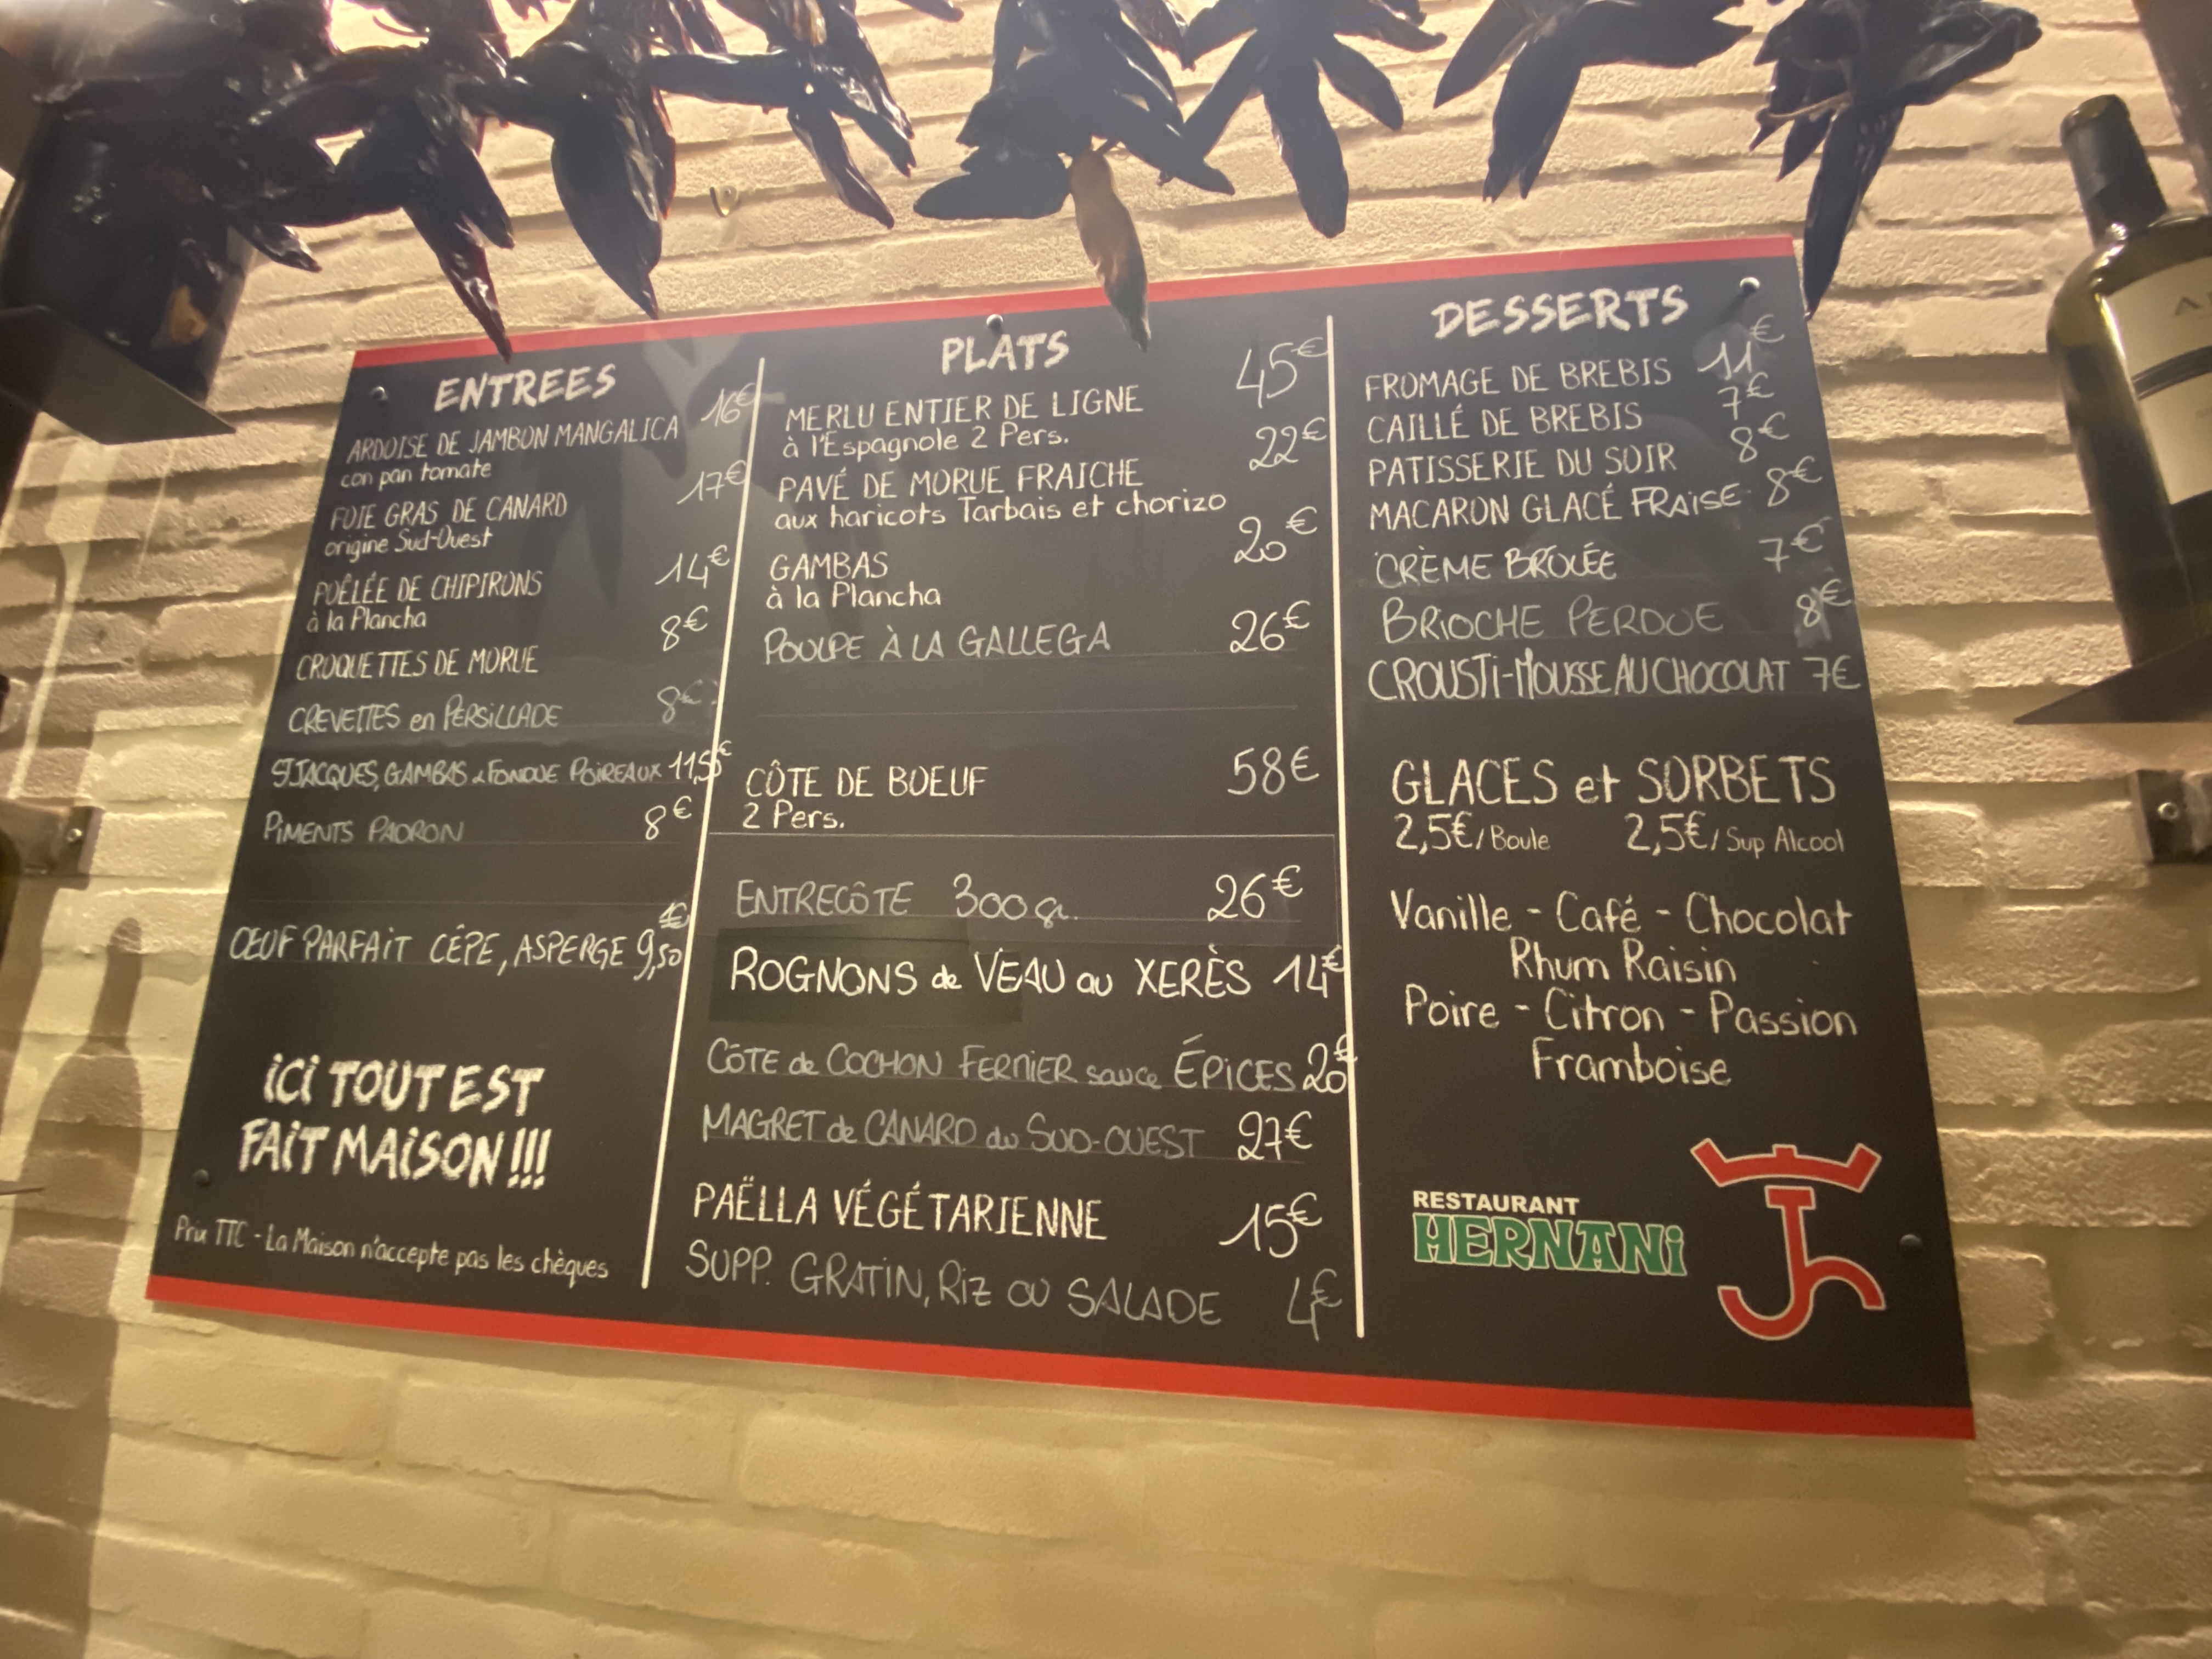 ENTREES
ARDOISE DE JAMBON MANGALICA 16€
con pan tomate
FOIE GRAS DE CANARD 17€
origine Sud-Ouest
POÊLÉE DE CHIPIRONS 14€
à la Plancha
CROQUETTES DE MORUE 8€
CREVETTES en PERSILLADE 8€
ST JACQUES, GAMBAS & FONDUE POIREAUX 11,5€
PIMENTS PADRON 8€
ŒUF PARFAIT CÊPE, ASPERGE 9,50€
iCi TOUT EST
FAiT MAiSON !!!
Prix TTC - La Maison n'accepte pas les chèques
PLATS
MERLU ENTIER DE LIGNE 45€
à l'Espagnole 2 Pers.
PAVÉ DE MORUE FRAICHE 22€
aux haricots Tarbais et chorizo
GAMBAS 20€
à la Plancha
POULPE À LA GALLEGA 26€
CÔTE DE BOEUF 58€
2 Pers.
ENTRECÔTE 300gr. 26€
ROGNONS de VEAU au XERÈS 14€
CÔTE de COCHON FERMIER sauce ÉPICES 20€
MAGRET de CANARD du SUD-OUEST 27€
PAËLLA VÉGÉTARIENNE 15€
SUPP. GRATIN, RIZ OU SALADE 4€
DESSERTS
FROMAGE DE BREBIS 11€
CAILLÉ DE BREBIS 7€
PATISSERIE DU SOIR 8€
MACARON GLACÉ FRAISE 8€
CRÈME BRÛLÉE 7€
BRIOCHE PERDUE 8€
CROUSTI-MOUSSE AU CHOCOLAT 7€
GLACES et SORBETS
2,5€/Boule 2,5€/Sup Alcool
Vanille - Café - Chocolat
Rhum Raisin
Poire - Citron - Passion
Framboise
RESTAURANT
HERNANi